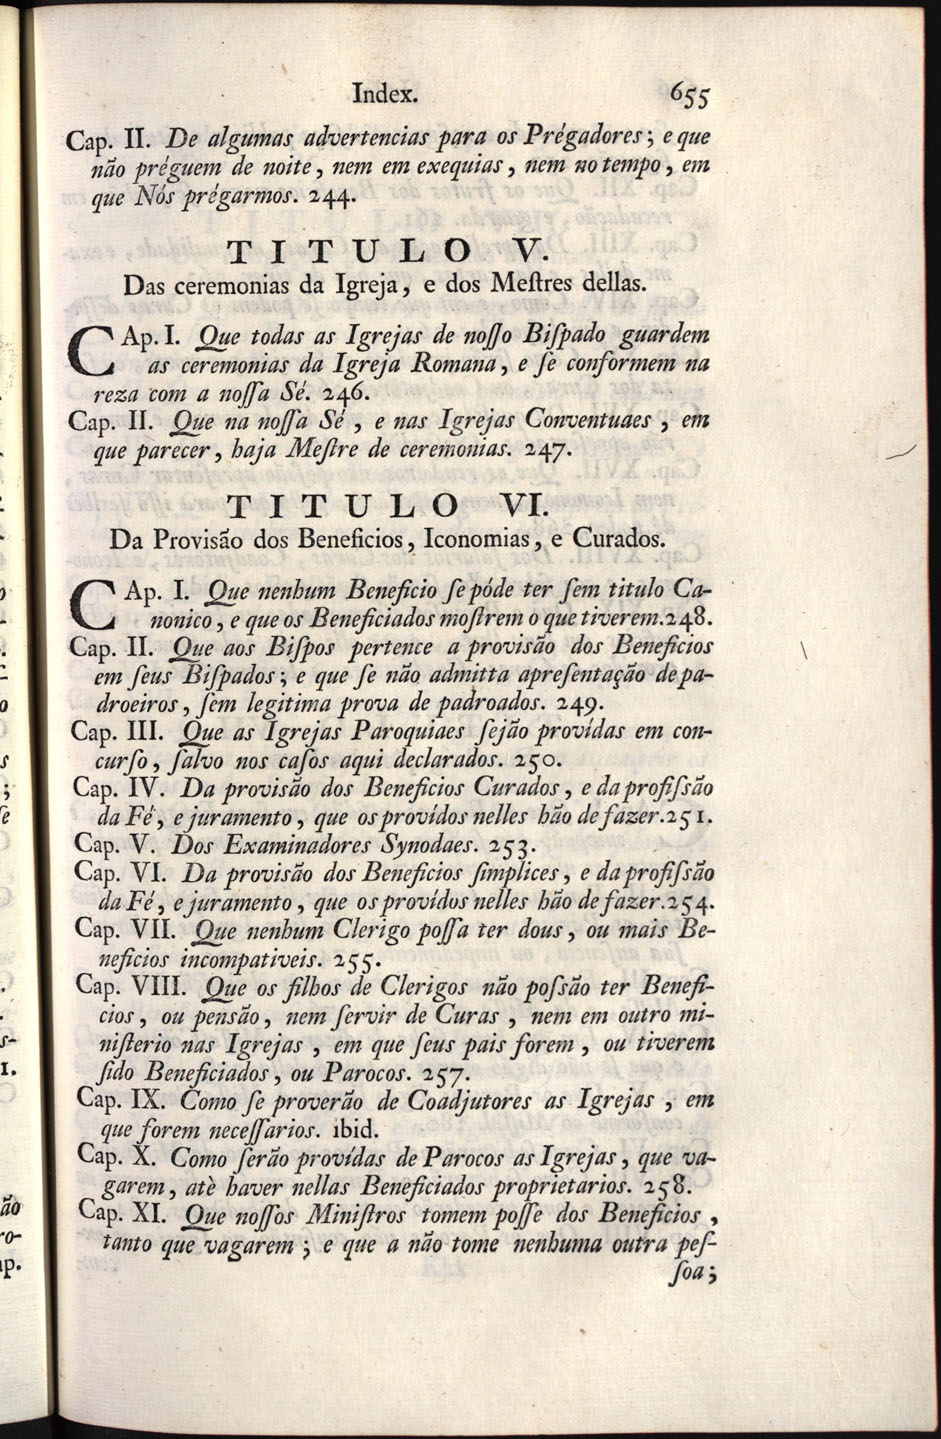 Index. 655
Cap. II. De algumas advertencias para os Prégadores; e que
não préguem de noite, nem em exequias, nem no tempo, em
que Nós prégarmos. 244.
TITULO V.
Das ceremonias da Igreja, e dos Meſtres dellas.
CAp. I. Que todas as Igrejas de noſſo Biſpado guardem
as ceremonias da Igreja Romana, e ſe conformem na
reza com a noſſa Sé. 246.
Cap. II. Que na noſſa Sé, e nas Igrejas Conventuaes, em
que parecer, haja Meſtre de ceremonias. 247.
TITULO VI.
Da Provisão dos Beneficios, Iconomias, e Curados.
CAp. I. Que nenhum Beneficio ſe póde ter ſem titulo Ca-
nonico, e que os Beneficiados moſtrem o que tiverem. 248.
Cap. II. Que aos Biſpos pertence a provisão dos Beneficios
em ſeus Biſpados; e que ſe não admitta apreſentação de pa-
droeiros, ſem legitima prova de padroados. 249.
Cap. III. Que as Igrejas Paroquiaes ſejão provídas em con-
curſo, ſalvo nos caſos aqui declarados. 250.
Cap. IV. Da provisão dos Beneficios Curados, e da profiſsão
da Fé, e juramento, que os provídos nelles hão de fazer. 251.
Cap. V. Dos Examinadores Synodaes. 253.
Cap. VI. Da provisão dos Beneficios ſimplices, e da profiſsão
da Fé, e juramento, que os provídos nelles hão de fazer. 254.
Cap. VII. Que nenhum Clerigo poſſa ter dous, ou mais Be-
neficios incompativeis. 255.
Cap. VIII. Que os filhos de Clerigos não poſsão ter Benefi-
cios, ou pensão, nem ſervir de Curas, nem em outro mi-
niſterio nas Igrejas, em que ſeus pais forem, ou tiverem
ſido Beneficiados, ou Parocos. 257.
Cap. IX. Como ſe proverão de Coadjutores as Igrejas, em
que forem neceſſarios. ibid.
Cap. X. Como ſerão provídas de Parocos as Igrejas, que va-
garem, atè haver nellas Beneficiados proprietarios. 258.
Cap. XI. Que noſſos Miniſtros tomem poſſe dos Beneficios,
tanto que vagarem; e que a não tome nenhuma outra peſ-
ſoa;